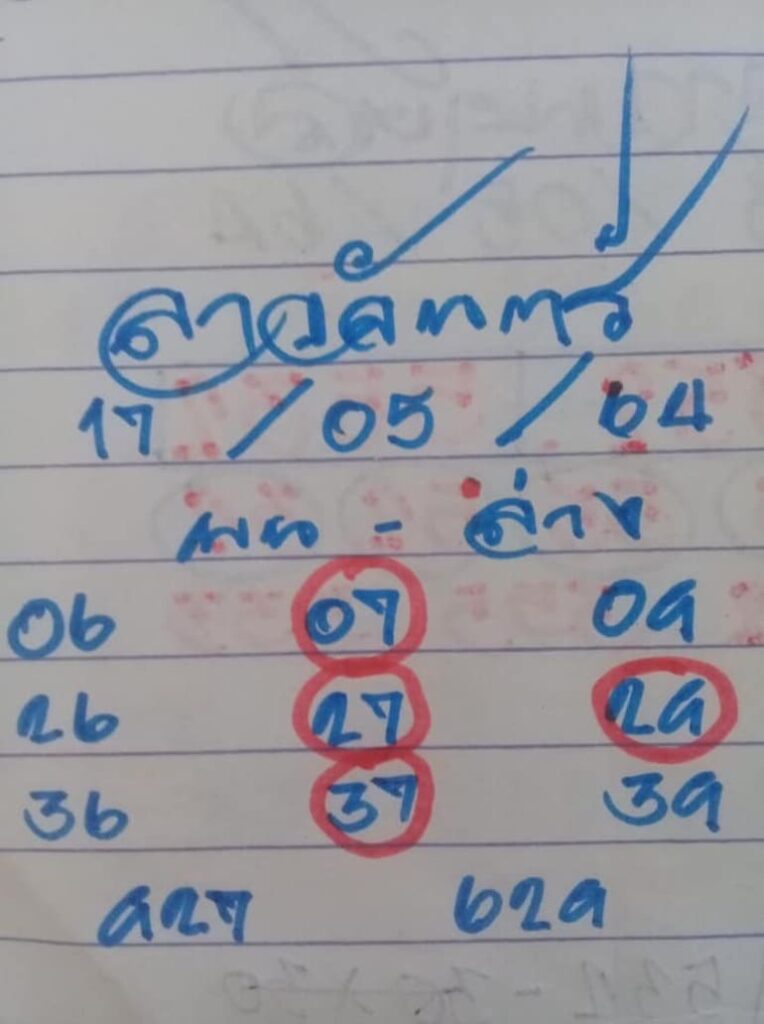 ลาวจันทร์
17 / 05 / 64
บน - ล่าง
06 07 09
26 27 29
36 37 39
927 629